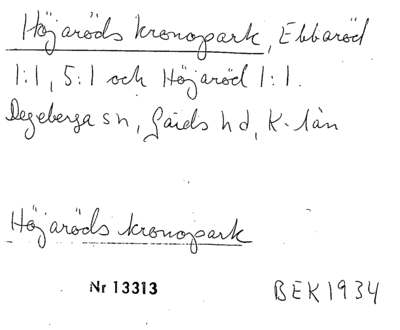 Höjaröds kronopark, Ebbaröd
1:1, 5:1 och Höjaröd 1:1.
Degeberga sn, Gärds hd, K-län
Höjaröds kronopark
Nr 13313
BEK 1934